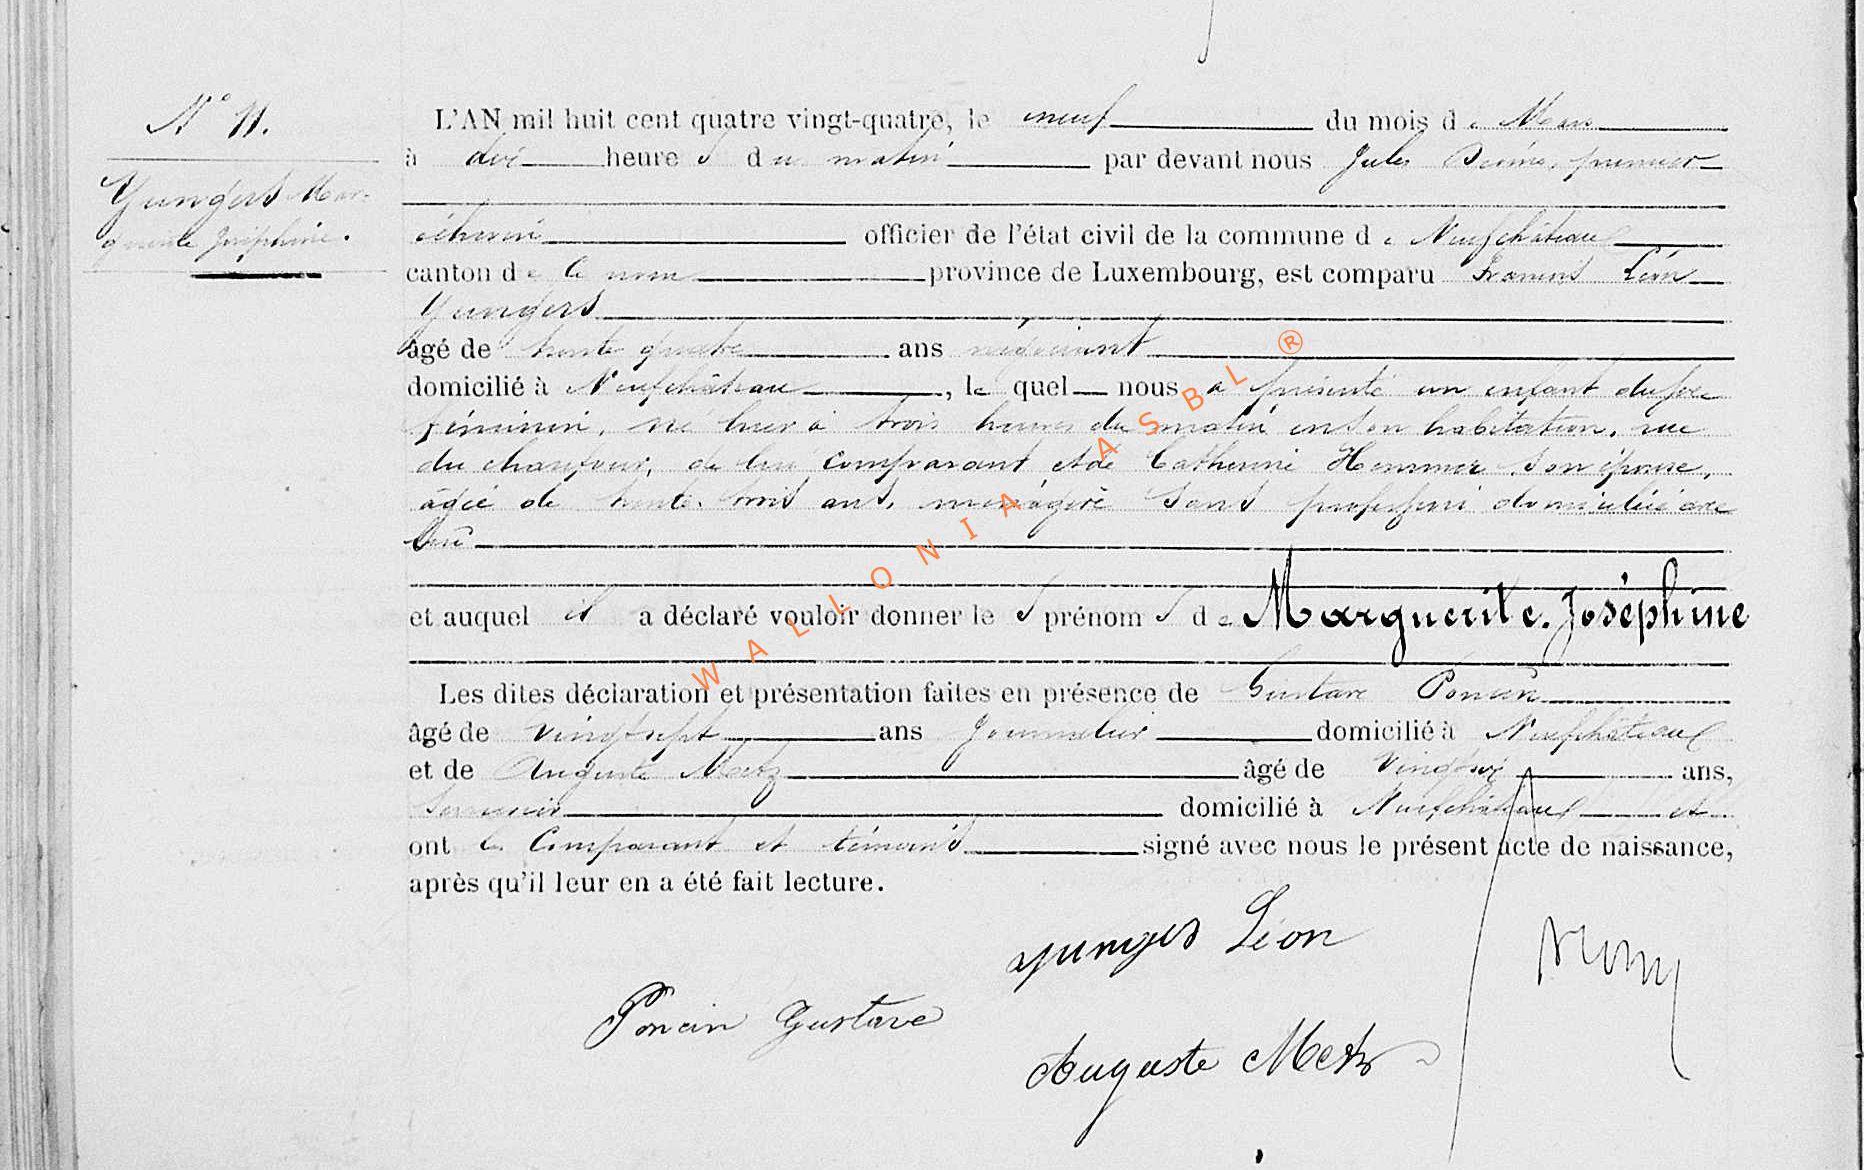 N° 11.
Yungers Mar-
guerite Joséphine.
L'AN mil huit cent quatre vingt-quatre, le neuf du mois de Mars
à dix heures du matin par devant nous Jules premier
échevin officier de l'état civil de la commune de Neufchâteau
canton de le nom province de Luxembourg, est comparu François Léon
Yungers
âgé de trente quatre ans négociant
domicilié à Neufchâteau, lequel nous a présenté un enfant du sexe
féminin, né hier à trois heures du matin en son habitation, rue
du chaufour, de lui comparant et de Catherine Hemmer son épouse,
âgée de trente trois ans, ménagère sans profession domiciliée avec
lui
et auquel il a déclaré vouloir donner les prénoms de Marguerite. Joséphine
Les dites déclaration et présentation faites en présence de Gustave Poncin
âgé de vingt sept ans journalier domicilié à Neufchâteau
et de Auguste Metz âgé de vingt six ans,
domicilié à Neufchâteau et
ont le comparant et témoins signé avec nous le présent acte de naissance,
après qu'il leur en a été fait lecture.
Yungers Léon
Poncin Gustave
Auguste Metz
WALLONIA ASBL ®